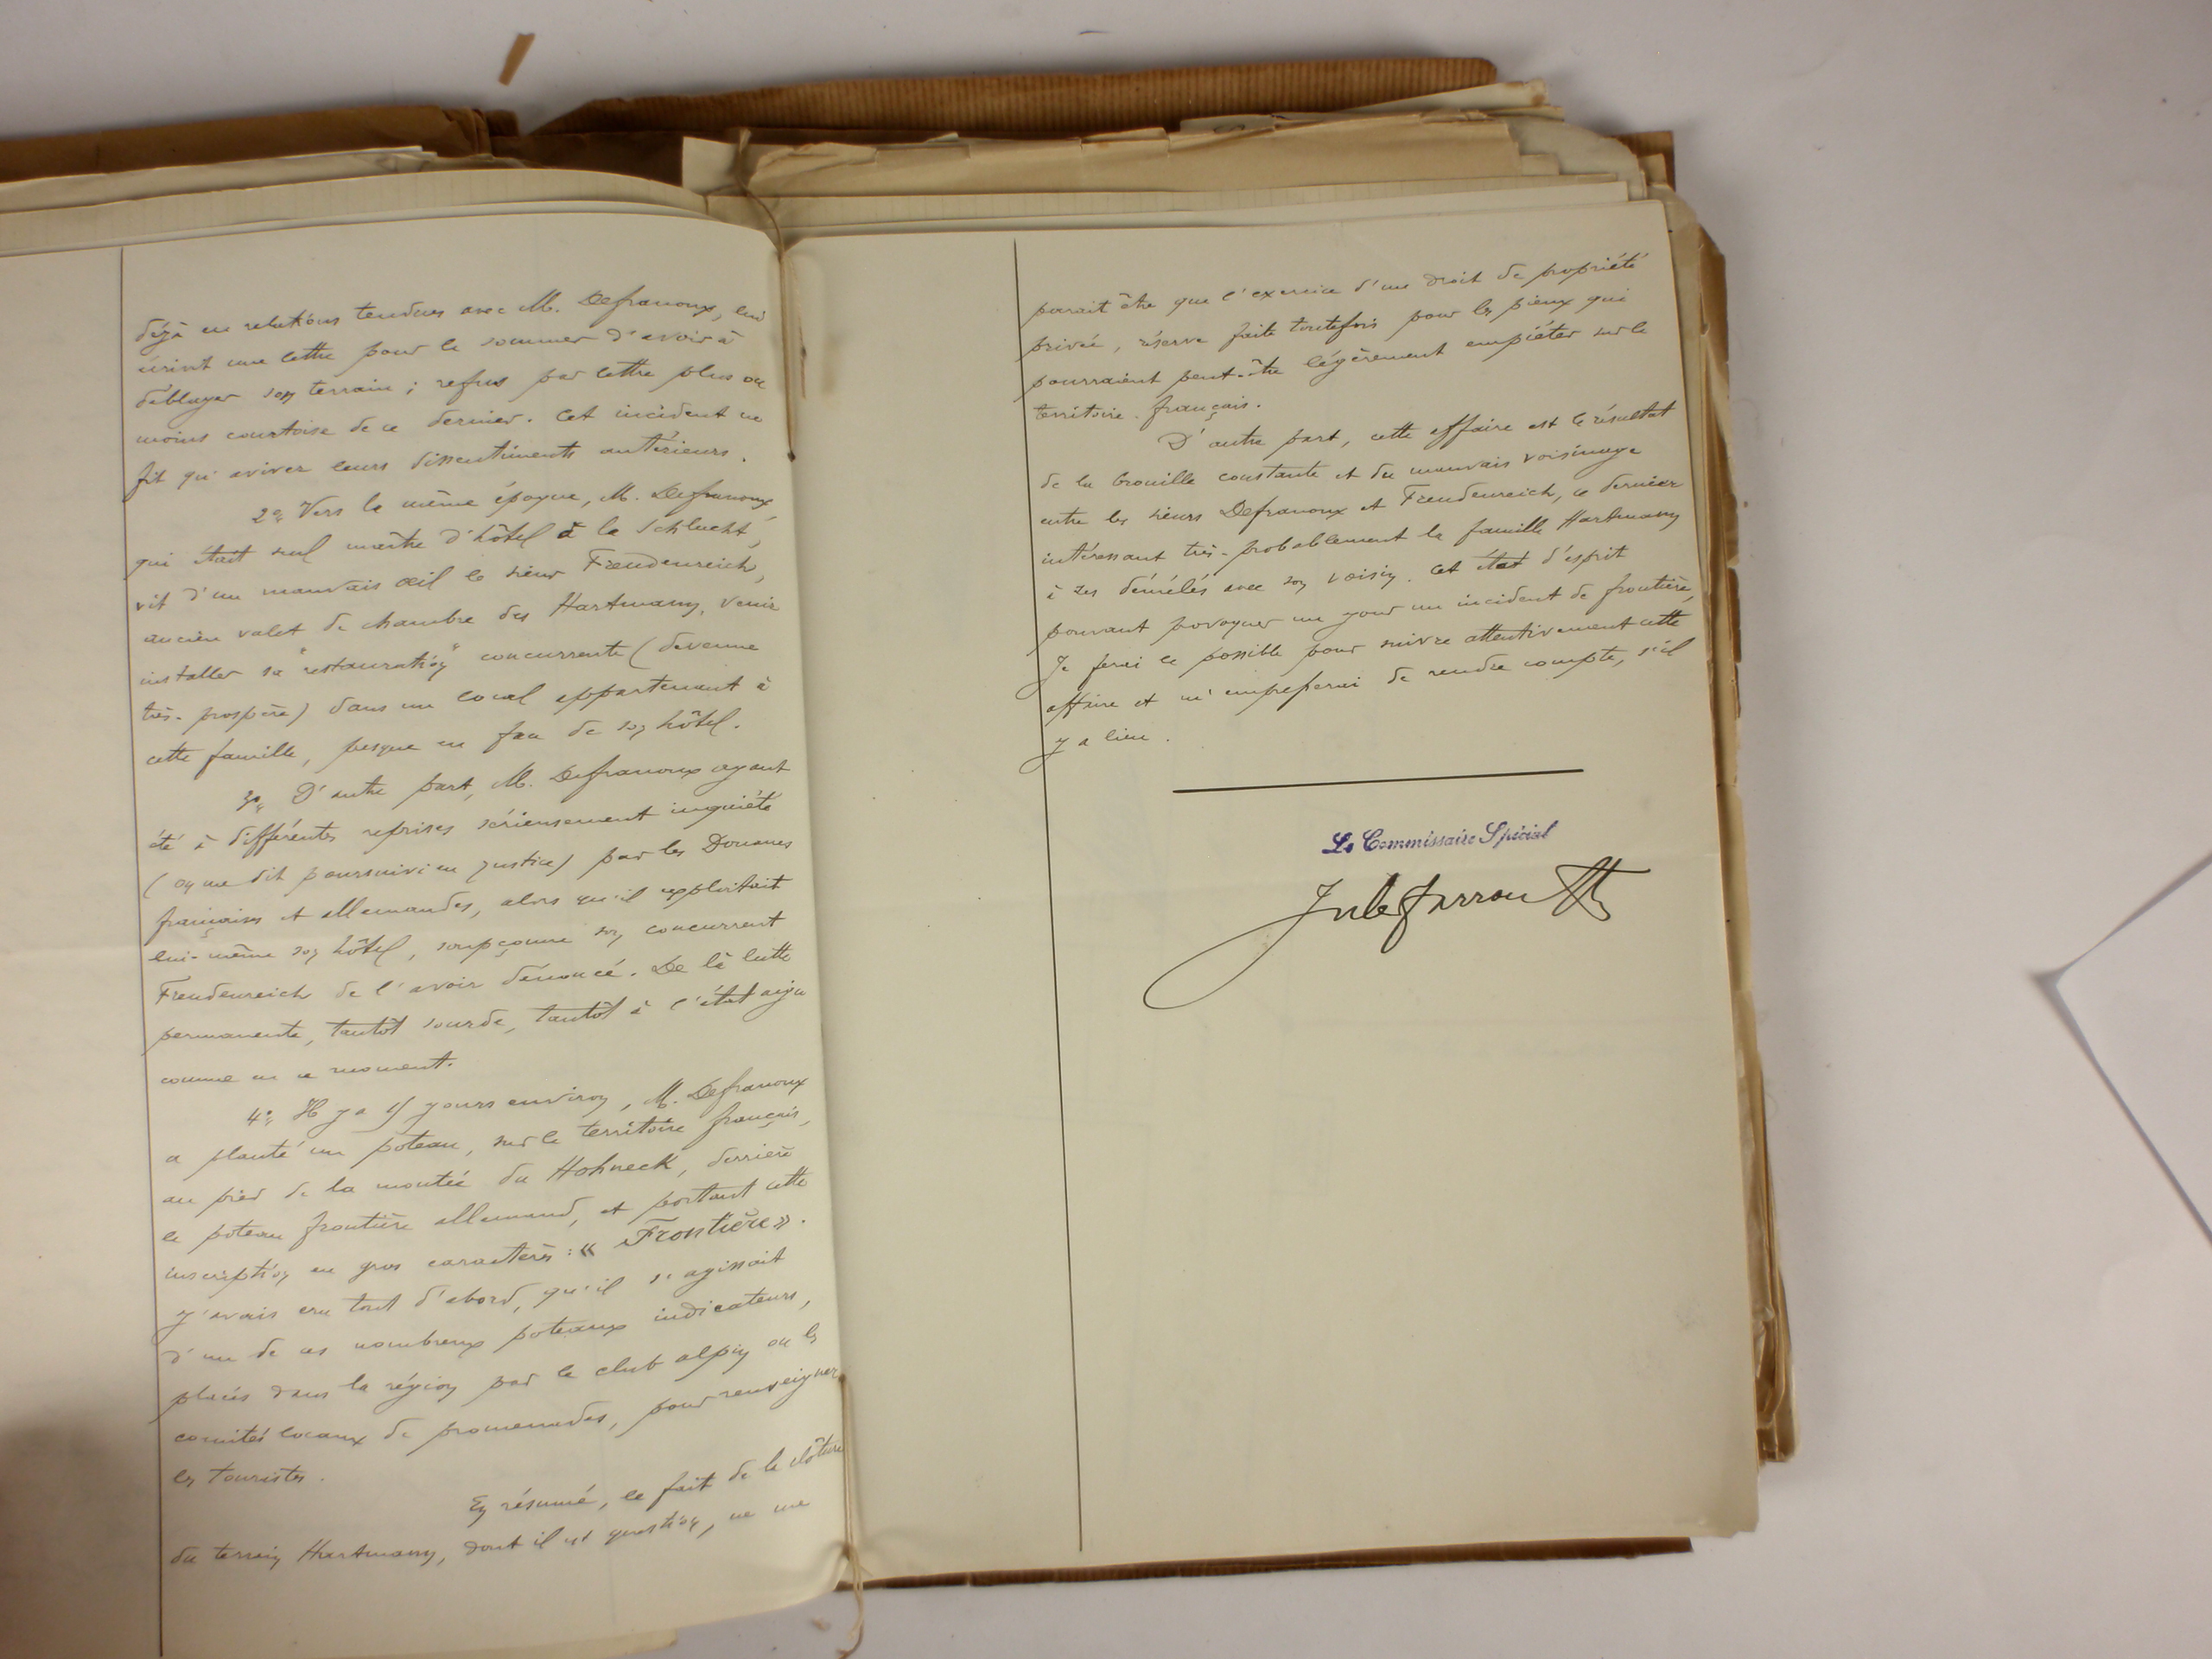 déjà en relations tendues avec M. Defranoux, lui
écrivit une lettre pour le sommer d'avoir à
déblayer son terrain ; refus par lettre plus ou
moins courtoise de ce dernier. Cet incident ne
fit qu'aviver leurs dissentiments antérieurs.
2° Vers la même époque, M. Defranoux,
qui était seul maître d'hôtel à la Schlucht,
vit d'un mauvais œil le sieur Freudenreich,
ancien valet de chambre des Hartmann, venir
installer sa "restauration" concurrente (devenue
très-prospère) dans un local appartenant à
cette famille, presque en face de son hôtel.
3° D'autre part, M. Defranoux ayant
été à différentes reprises sérieusement inquiété
(on me dit poursuivi en justice) par les Douanes
françaises et allemandes, alors qu'il exploitait
lui-même son hôtel, soupçonne son concurrent
Freudenreich de l'avoir dénoncé. De là lutte
permanente, tantôt sourde, tantôt à l'état aigu
comme en ce moment.
4° Il y a jours environ, M. Defranoux
a planté un poteau, sur le territoire français,
au pied de la montée du Hohneck, derrière
le poteau frontière allemand, et portant cette
inscription en gros caractères : « Frontière ».
J'avais cru tout d'abord, qu'il s'agissait
d'un de ces nombreux poteaux indicateurs,
placés dans la région par le club alpin ou les
comités locaux de promenades, pour renseigner
les touristes.
En résumé, le fait de la clôture
du terrain Hartmann, dont il est question, ne me
parait être que l'exercice d'un droit de propriété
privée, réserve faite toutefois pour les pieux qui
pourraient peut-être légèrement empiéter sur le
territoire français.
D'autre part, cette affaire est le résultat
de la brouille constante et du mauvais voisinage
entre les sieurs Defranoux et Freudenreich, ce dernier
intéressant très-probablement la famille Hartmann
à ses démêlés avec son voisin. Cet état d'esprit
pouvant provoquer un jour un incident de frontière,
Je ferai le possible pour suivre attentivement cette
affaire et m'empresserai de rendre compte, s'il
y a lieu.
Le Commissaire Spécial